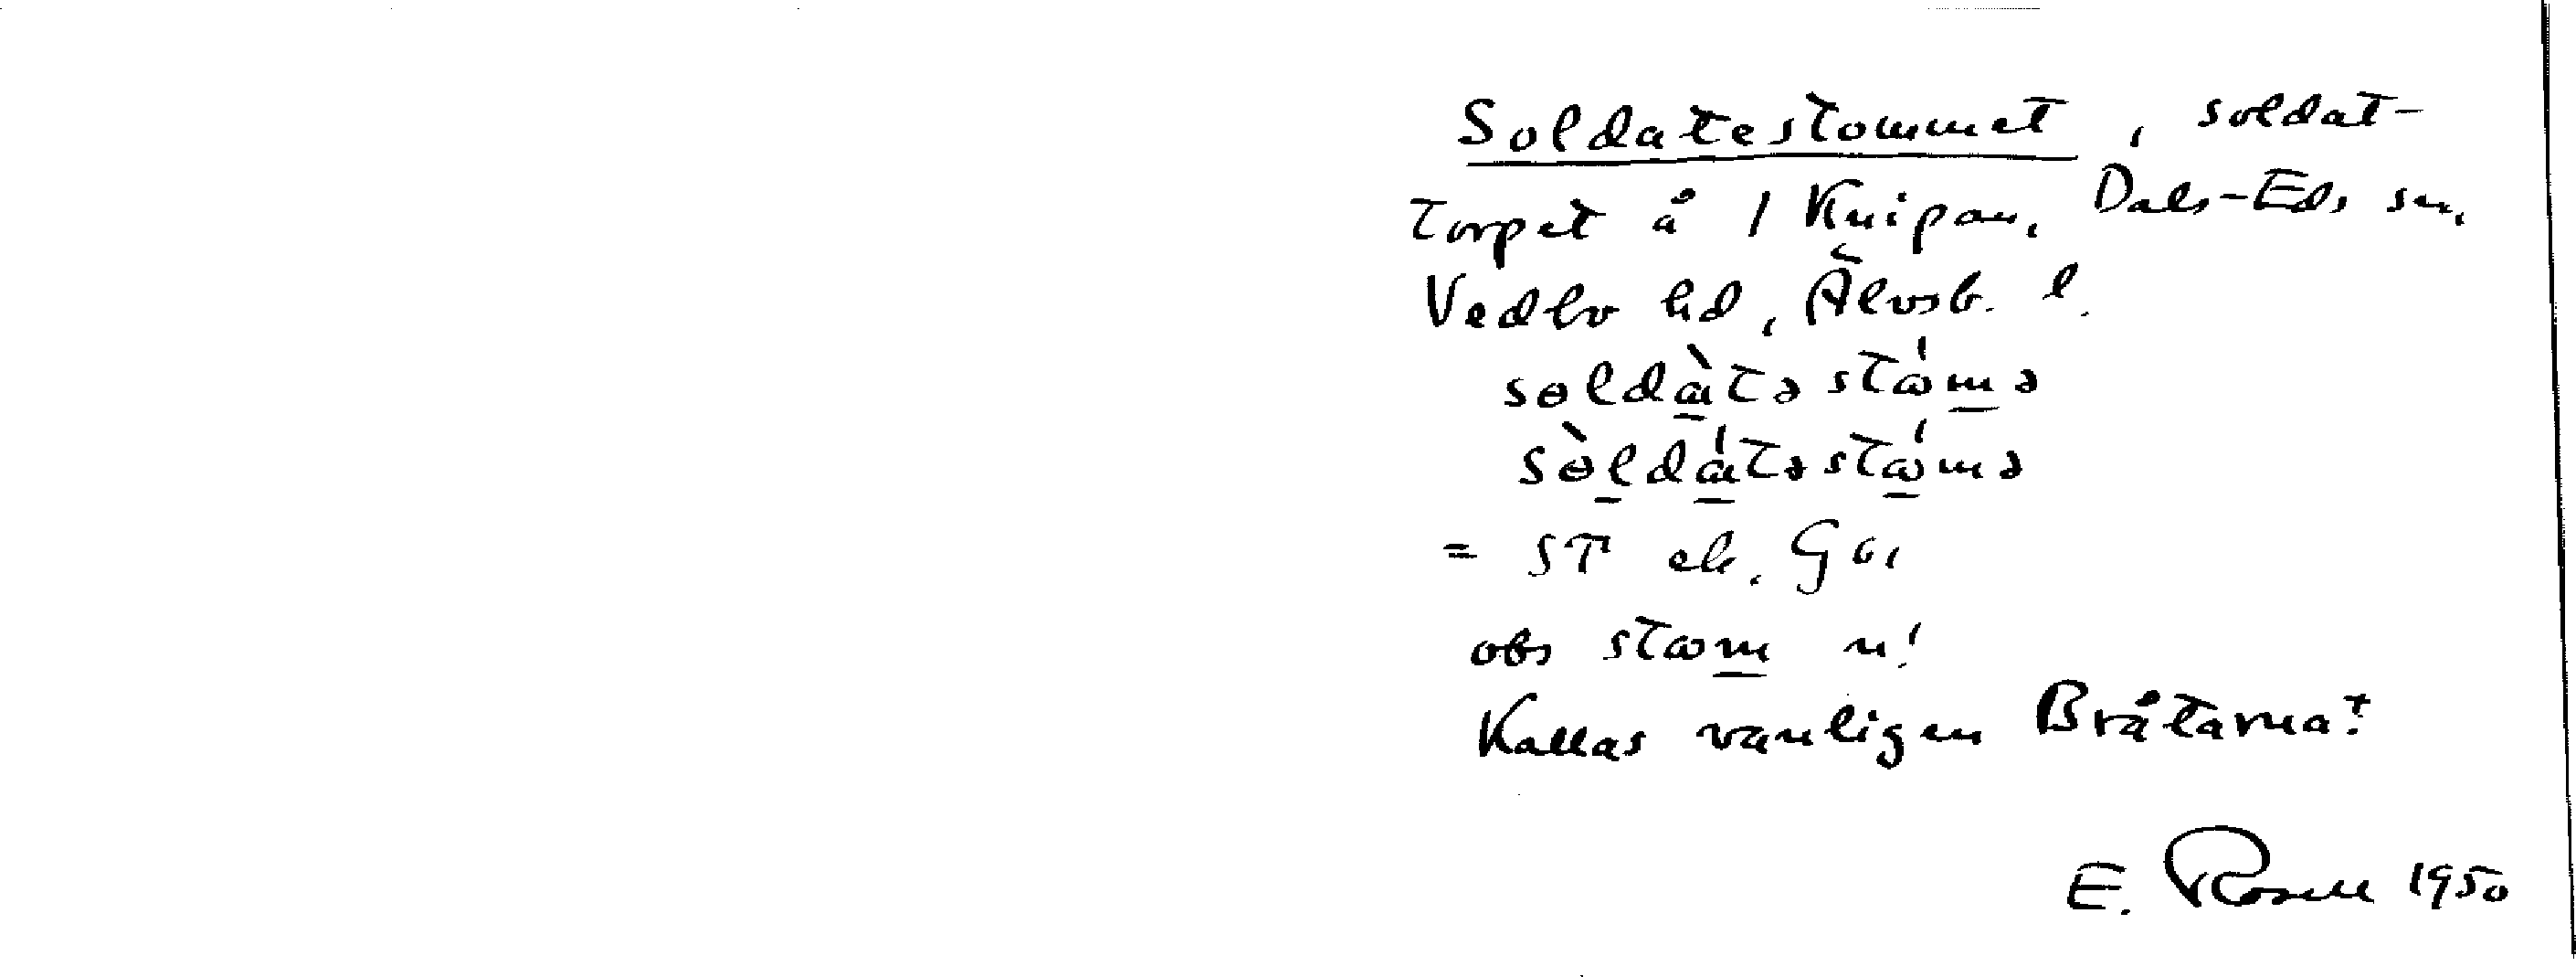 Soldatestommet, soldat-
torpet å 1 Knipan, Dals-Eds sn,
Vedbo hd, Älvsb. l.
sɵldàtə stámə
sɵ̀ldátəstámə
= ST
obs stam n!
Kallas vanligen Bråtarna?
E. Rosell 1950